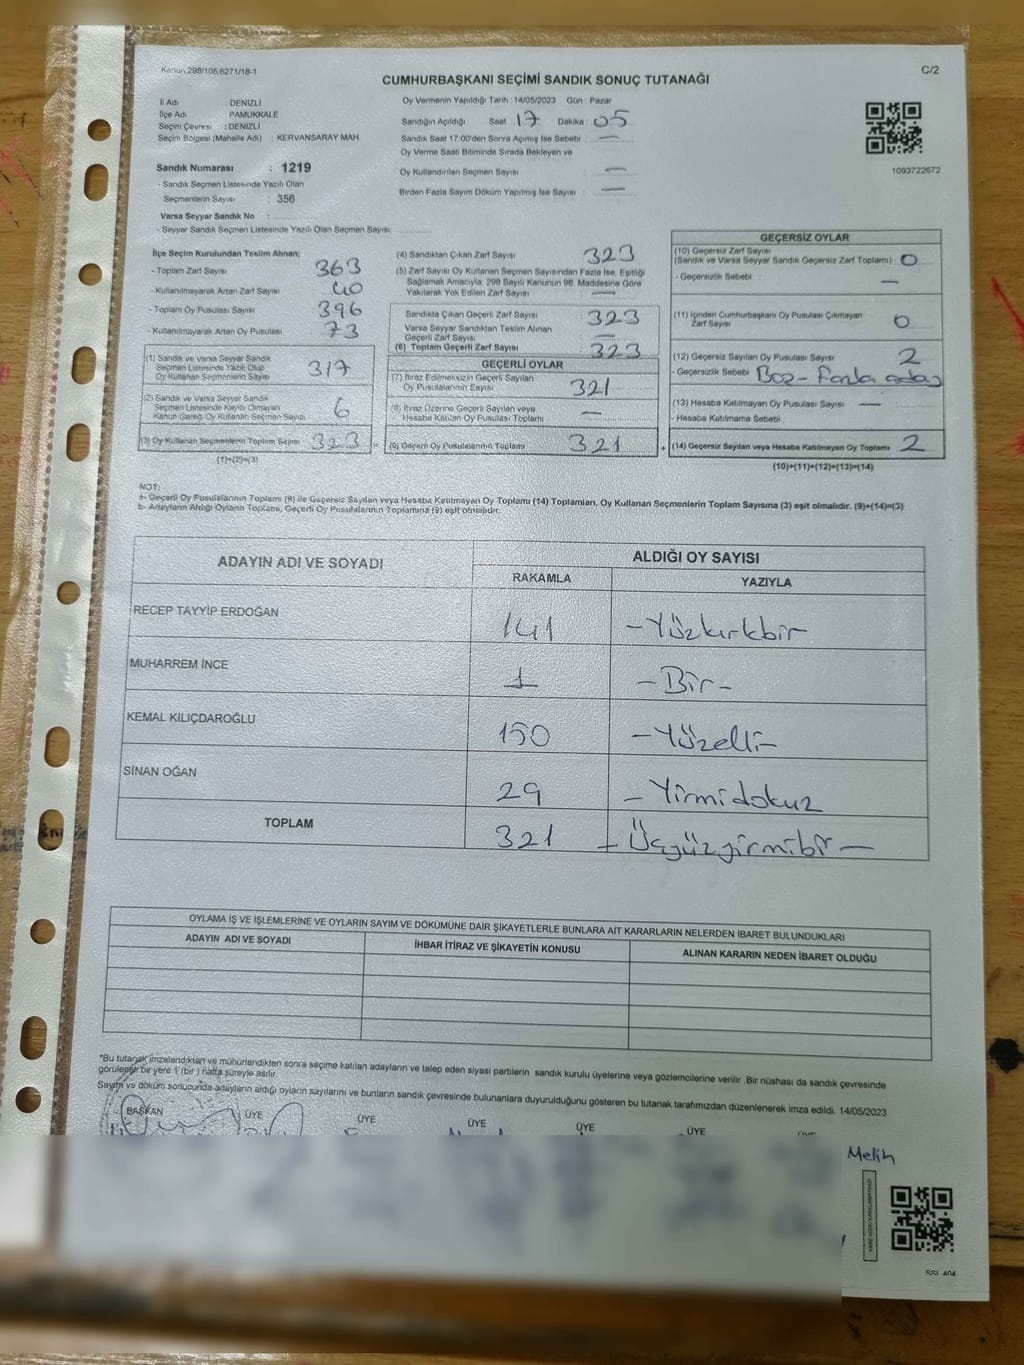 Kanun 298/105,6271/18-1
C/2
CUMHURBAŞKANI SEÇİMİ SANDIK SONUÇ TUTANAĞI
İl Adı : DENİZLİ
İlçe Adı : PAMUKKALE
Seçim Çevresi : DENİZLİ
Seçim Bölgesi (Mahalle Adı) : KERVANSARAY MAH.
Sandık Numarası : 1219
- Sandık Seçmen Listesinde Yazılı Olan
Seçmenlerin Sayısı : 356
Varsa Seyyar Sandık No :
- Seyyar Sandık Seçmen Listesinde Yazılı Olan Seçmen Sayısı
Oy Vermenin Yapıldığı Tarih : 14/05/2023 Gün : Pazar
Sandığın Açıldığı Saat : 17 Dakika : 05
Sandık Saat 17:00'den Sonra Açılmış İse Sebebi : —
Oy Verme Saati Bitiminde Sırada Bekleyen ve
Oy Kullandırılan Seçmen Sayısı : —
Birden Fazla Sayım Döküm Yapılmış İse Sayısı : —
1093722672
İlçe Seçim Kurulundan Teslim Alınan;
- Toplam Zarf Sayısı 363
- Kullanılmayarak Artan Zarf Sayısı 40
- Toplam Oy Pusulası Sayısı 396
- Kullanılmayarak Artan Oy Pusulası 73
(1) Sandık ve Varsa Seyyar Sandık
Seçmen Listesinde Yazılı Olup
Oy Kullanan Seçmenlerin Sayısı 317
(2) Sandık ve Varsa Seyyar Sandık
Seçmen Listesinde Kaydı Olmayan
Kanun Gereği Oy Kullanan Seçmen Sayısı 6
(3) Oy Kullanan Seçmenlerin Toplam Sayısı 323
(1)+(2)=(3)
(4) Sandıktan Çıkan Zarf Sayısı 323
(5) Zarf Sayısı Oy Kullanan Seçmen Sayısından Fazla İse, Eşitliği
Sağlamak Amacıyla; 298 Sayılı Kanunun 98. Maddesine Göre
Yakılarak Yok Edilen Zarf Sayısı —
Sandıkta Çıkan Geçerli Zarf Sayısı 323
Varsa Seyyar Sandıktan Teslim Alınan
Geçerli Zarf Sayısı —
(6) Toplam Geçerli Zarf Sayısı 323
GEÇERLİ OYLAR
(7) İtiraz Edilmeksizin Geçerli Sayılan
Oy Pusulalarının Sayısı 321
(8) İtiraz Üzerine Geçerli Sayılan veya
Hesaba Katılan Oy Pusulaları Toplamı —
(9) Geçerli Oy Pusulalarının Toplamı 321
GEÇERSİZ OYLAR
(10) Geçersiz Zarf Sayısı
(Sandık ve Varsa Seyyar Sandık Geçersiz Zarf Toplamı) : 0
- Geçersizlik Sebebi —
(11) İçinden Cumhurbaşkanı Oy Pusulası Çıkmayan
Zarf Sayısı 0
(12) Geçersiz Sayılan Oy Pusulası Sayısı 2
- Geçersizlik Sebebi Boş - Fazla aday
(13) Hesaba Katılmayan Oy Pusulası Sayısı —
- Hesaba Katılmama Sebebi
+ (14) Geçersiz Sayılan veya Hesaba Katılmayan Oy Toplamı 2
(10)+(11)+(12)+(13)=(14)
NOT:
a- Geçerli Oy Pusulalarının Toplamı (9) ile Geçersiz Sayılan veya Hesaba Katılmayan Oy Toplamı (14) Toplamları, Oy Kullanan Seçmenlerin Toplam Sayısına (3) eşit olmalıdır. (9)+(14)=(3)
b- Adayların Aldığı Oyların Toplamı, Geçerli Oy Pusulalarının Toplamına (9) eşit olmalıdır.
ADAYIN ADI VE SOYADI
ALDIĞI OY SAYISI
RAKAMLA YAZIYLA
RECEP TAYYİP ERDOĞAN 141 - Yüzkırkbir
MUHARREM İNCE 1 - Bir -
KEMAL KILIÇDAROĞLU 150 - Yüzelli -
SİNAN OĞAN 29 - Yirmidokuz
TOPLAM 321 - Üçyüzyirmibir —
OYLAMA İŞ VE İŞLEMLERİNE VE OYLARIN SAYIM VE DÖKÜMÜNE DAİR ŞİKAYETLERLE BUNLARA AİT KARARLARIN NELERDEN İBARET BULUNDUKLARI
ADAYIN ADI VE SOYADI İHBAR İTİRAZ VE ŞİKAYETİN KONUSU ALINAN KARARIN NEDEN İBARET OLDUĞU
*Bu tutanak imzalandıktan ve mühürlendikten sonra seçime katılan adayların ve talep eden siyasi partilerin sandık kurulu üyelerine veya gözlemcilerine verilir. Bir nüshası da sandık çevresinde
görülecek bir yere 1 (bir) hafta süreyle asılır.
Sayım ve döküm sonucunda adayların aldığı oyların sayılarını ve bunların sandık çevresinde bulunanlara duyurulduğunu gösteren bu tutanak tarafımızdan düzenlenerek imza edildi. 14/05/2023
BAŞKAN ÜYE ÜYE ÜYE ÜYE ÜYE
Melih